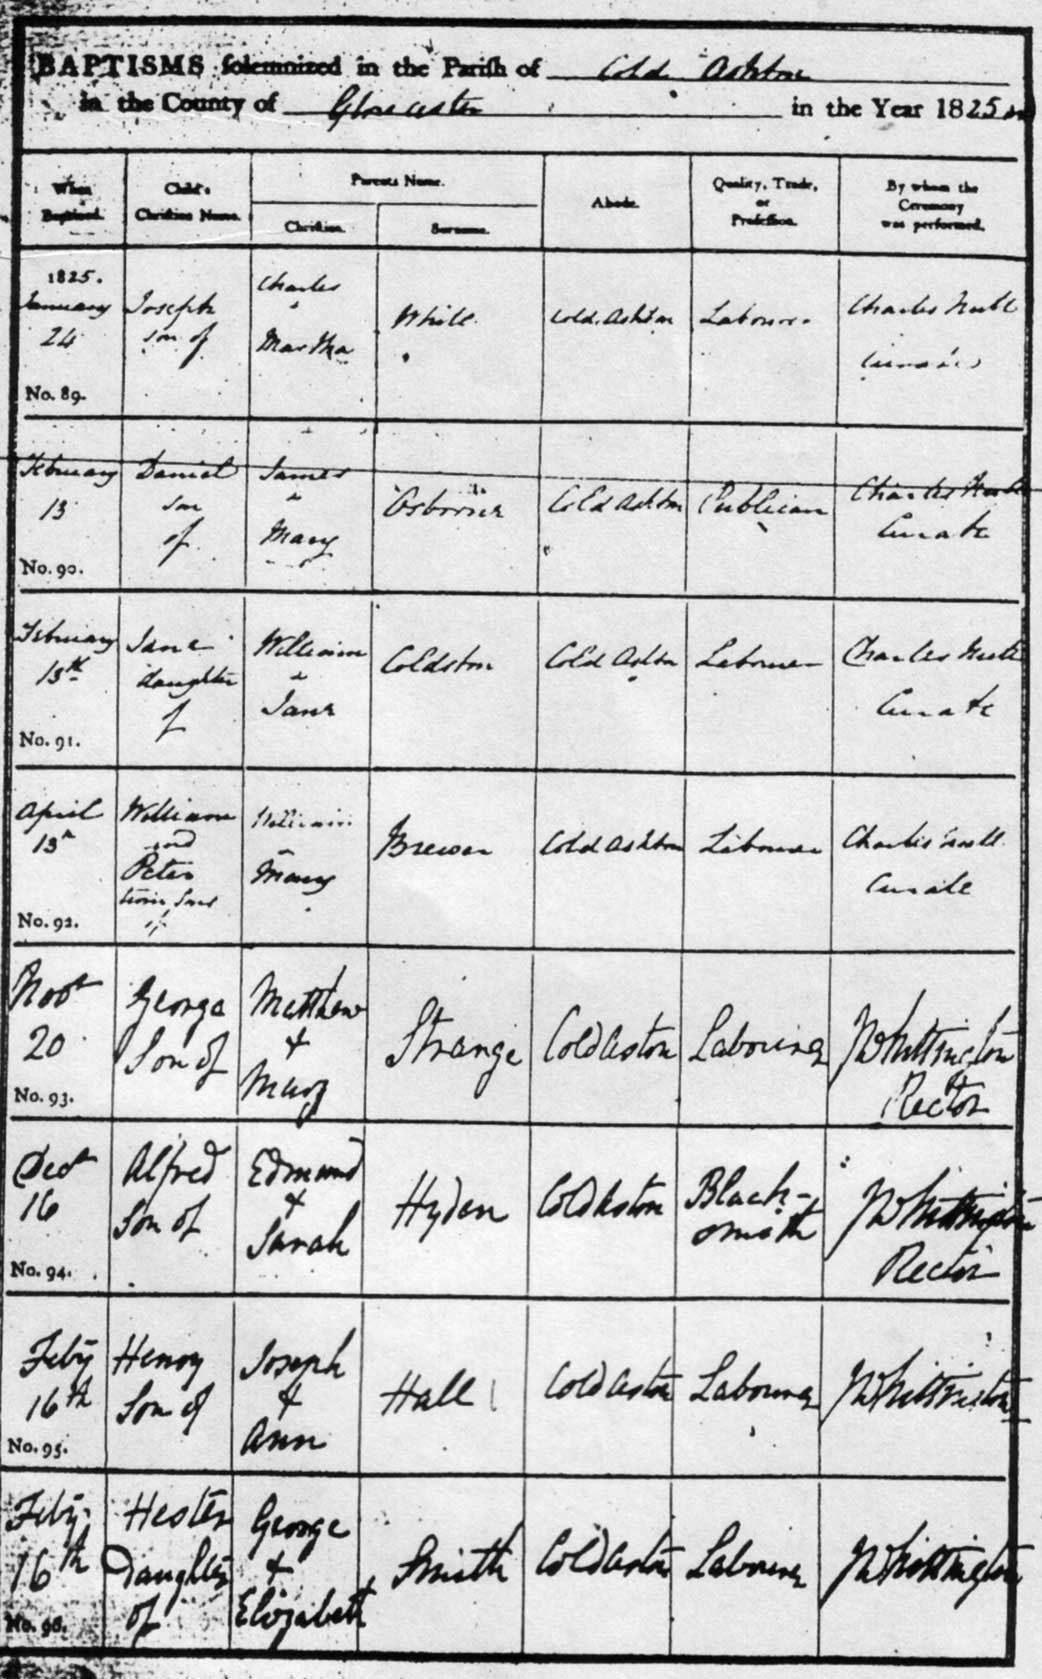 BAPTISMS solemnized in the Parish of Cold Ashton
in the County of Gloucester in the Year 1825
When Baptized.
Child's Christian Name.
Parents Name.
Christian.
Surname.
Abode.
Quality, Trade, or Profession.
By whom the Ceremony was performed.
1825.
January
24
No. 89.
Joseph
son of
Charles
&
Martha
White
Cold Ashton
Labourer
Charles
Curate
February
13
No. 90.
Daniel
son
of
James
&
Mary
Osborne
Cold Ashton
Publican
Charles
Curate
February
13th
No. 91.
Jane
daughter
of
William
&
Jane
Coldston
Cold Ashton
Labourer
Charles
Curate
April
13th
No. 92.
William
and
Peter
twin sons
of
William
&
Mary
Brewer
Cold Ashton
Labourer
Charles
Curate
Novr
20
No. 93.
George
Son of
Matthew
&
Mary
Strange
Cold Aston
Labourer
JWhittington
Rector
Decr
16
No. 94.
Alfred
Son of
Edmund
&
Sarah
Hyden
Cold Aston
Black-
smith
JWhittington
Rector
Feby
16th
No. 95.
Henry
Son of
Joseph
&
Ann
Hall
Cold Aston
Labourer
JWhittington
Feby
16th
No. 96.
Hester
Daughter
of
George
&
Elizabeth
Smith
Cold Aston
Labourer
JWhittington